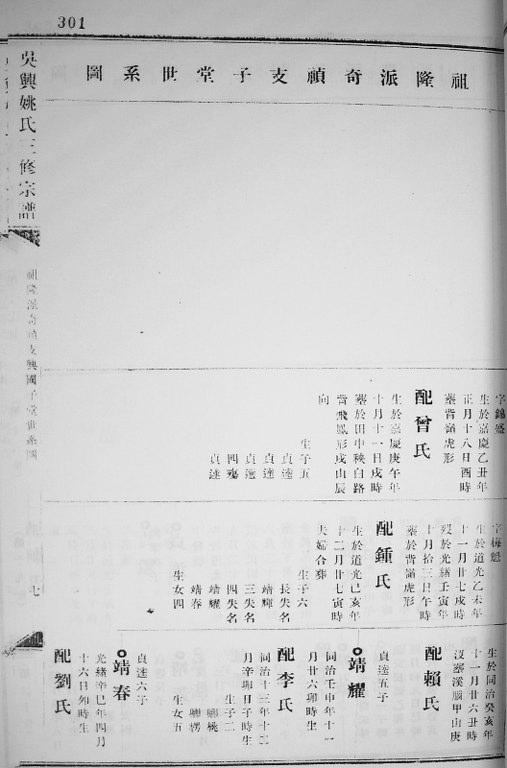 301
祖隆派奇禎支子堂世系圖
吳興姚氏三修宗譜
七
字錦盛
生於嘉慶乙丑年
正月十八日酉時
塟背嶺虎形
配曾氏
生於嘉慶庚午年
十月十一日戌時
塟於田中秧白路
背飛鳳形戌山辰
向
生子五
貞逵
貞達
貞
四殤
貞
字梅魁
生於道光乙未年
十一月廿七戌時
歿於光緒壬寅年
十月拾三日午時
塟於背嶺虎形
配鍾氏
生於道光己亥年
十二月廿七寅時
夫婦合葬
生子六
長失名
靖輝
三失名
四失名
靖耀
靖春
生女四
生於同治癸亥年
十一月廿六丑時
沒塟溪腦甲山庚
配賴氏
貞逵五子
靖耀
同治壬申年十一
月廿六卯時生
配李氏
同治十三年十二
月辛卯日子時生
生子二
生女五
貞逵六子
靖春
光緒辛巳年四月
十六日卯時生
配劉氏